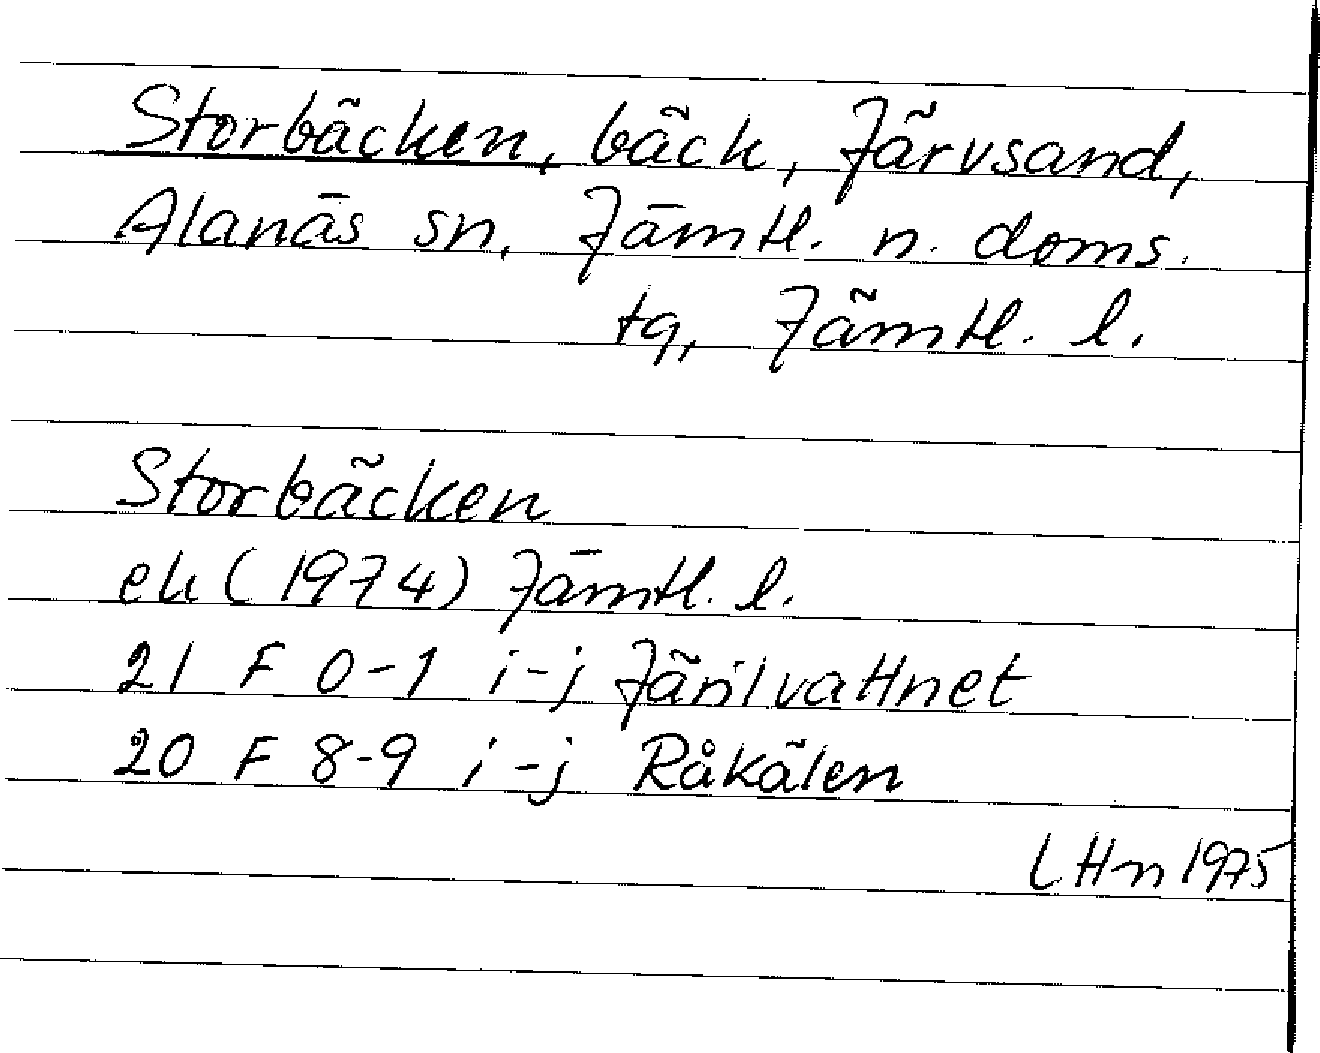 Storbäcken, bäck, Järvsand,
Alanäs sn, Jämtl. n. doms.
tq, Jämtl. l.
Storbäcken
ek (1974) Jämtl. l.
21 F 0-1 i-j Järilvattnet
20 F 8-9 i-j Råkälen
LHn 1975